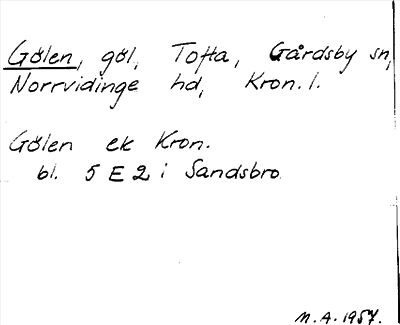 Gölen, göl, Tofta, Gårdsby sn,
Norrvidinge hd, Kron. l.
Gölen ek Kron.
bl. 5 E 2 i Sandsbro
M.A. 1957.